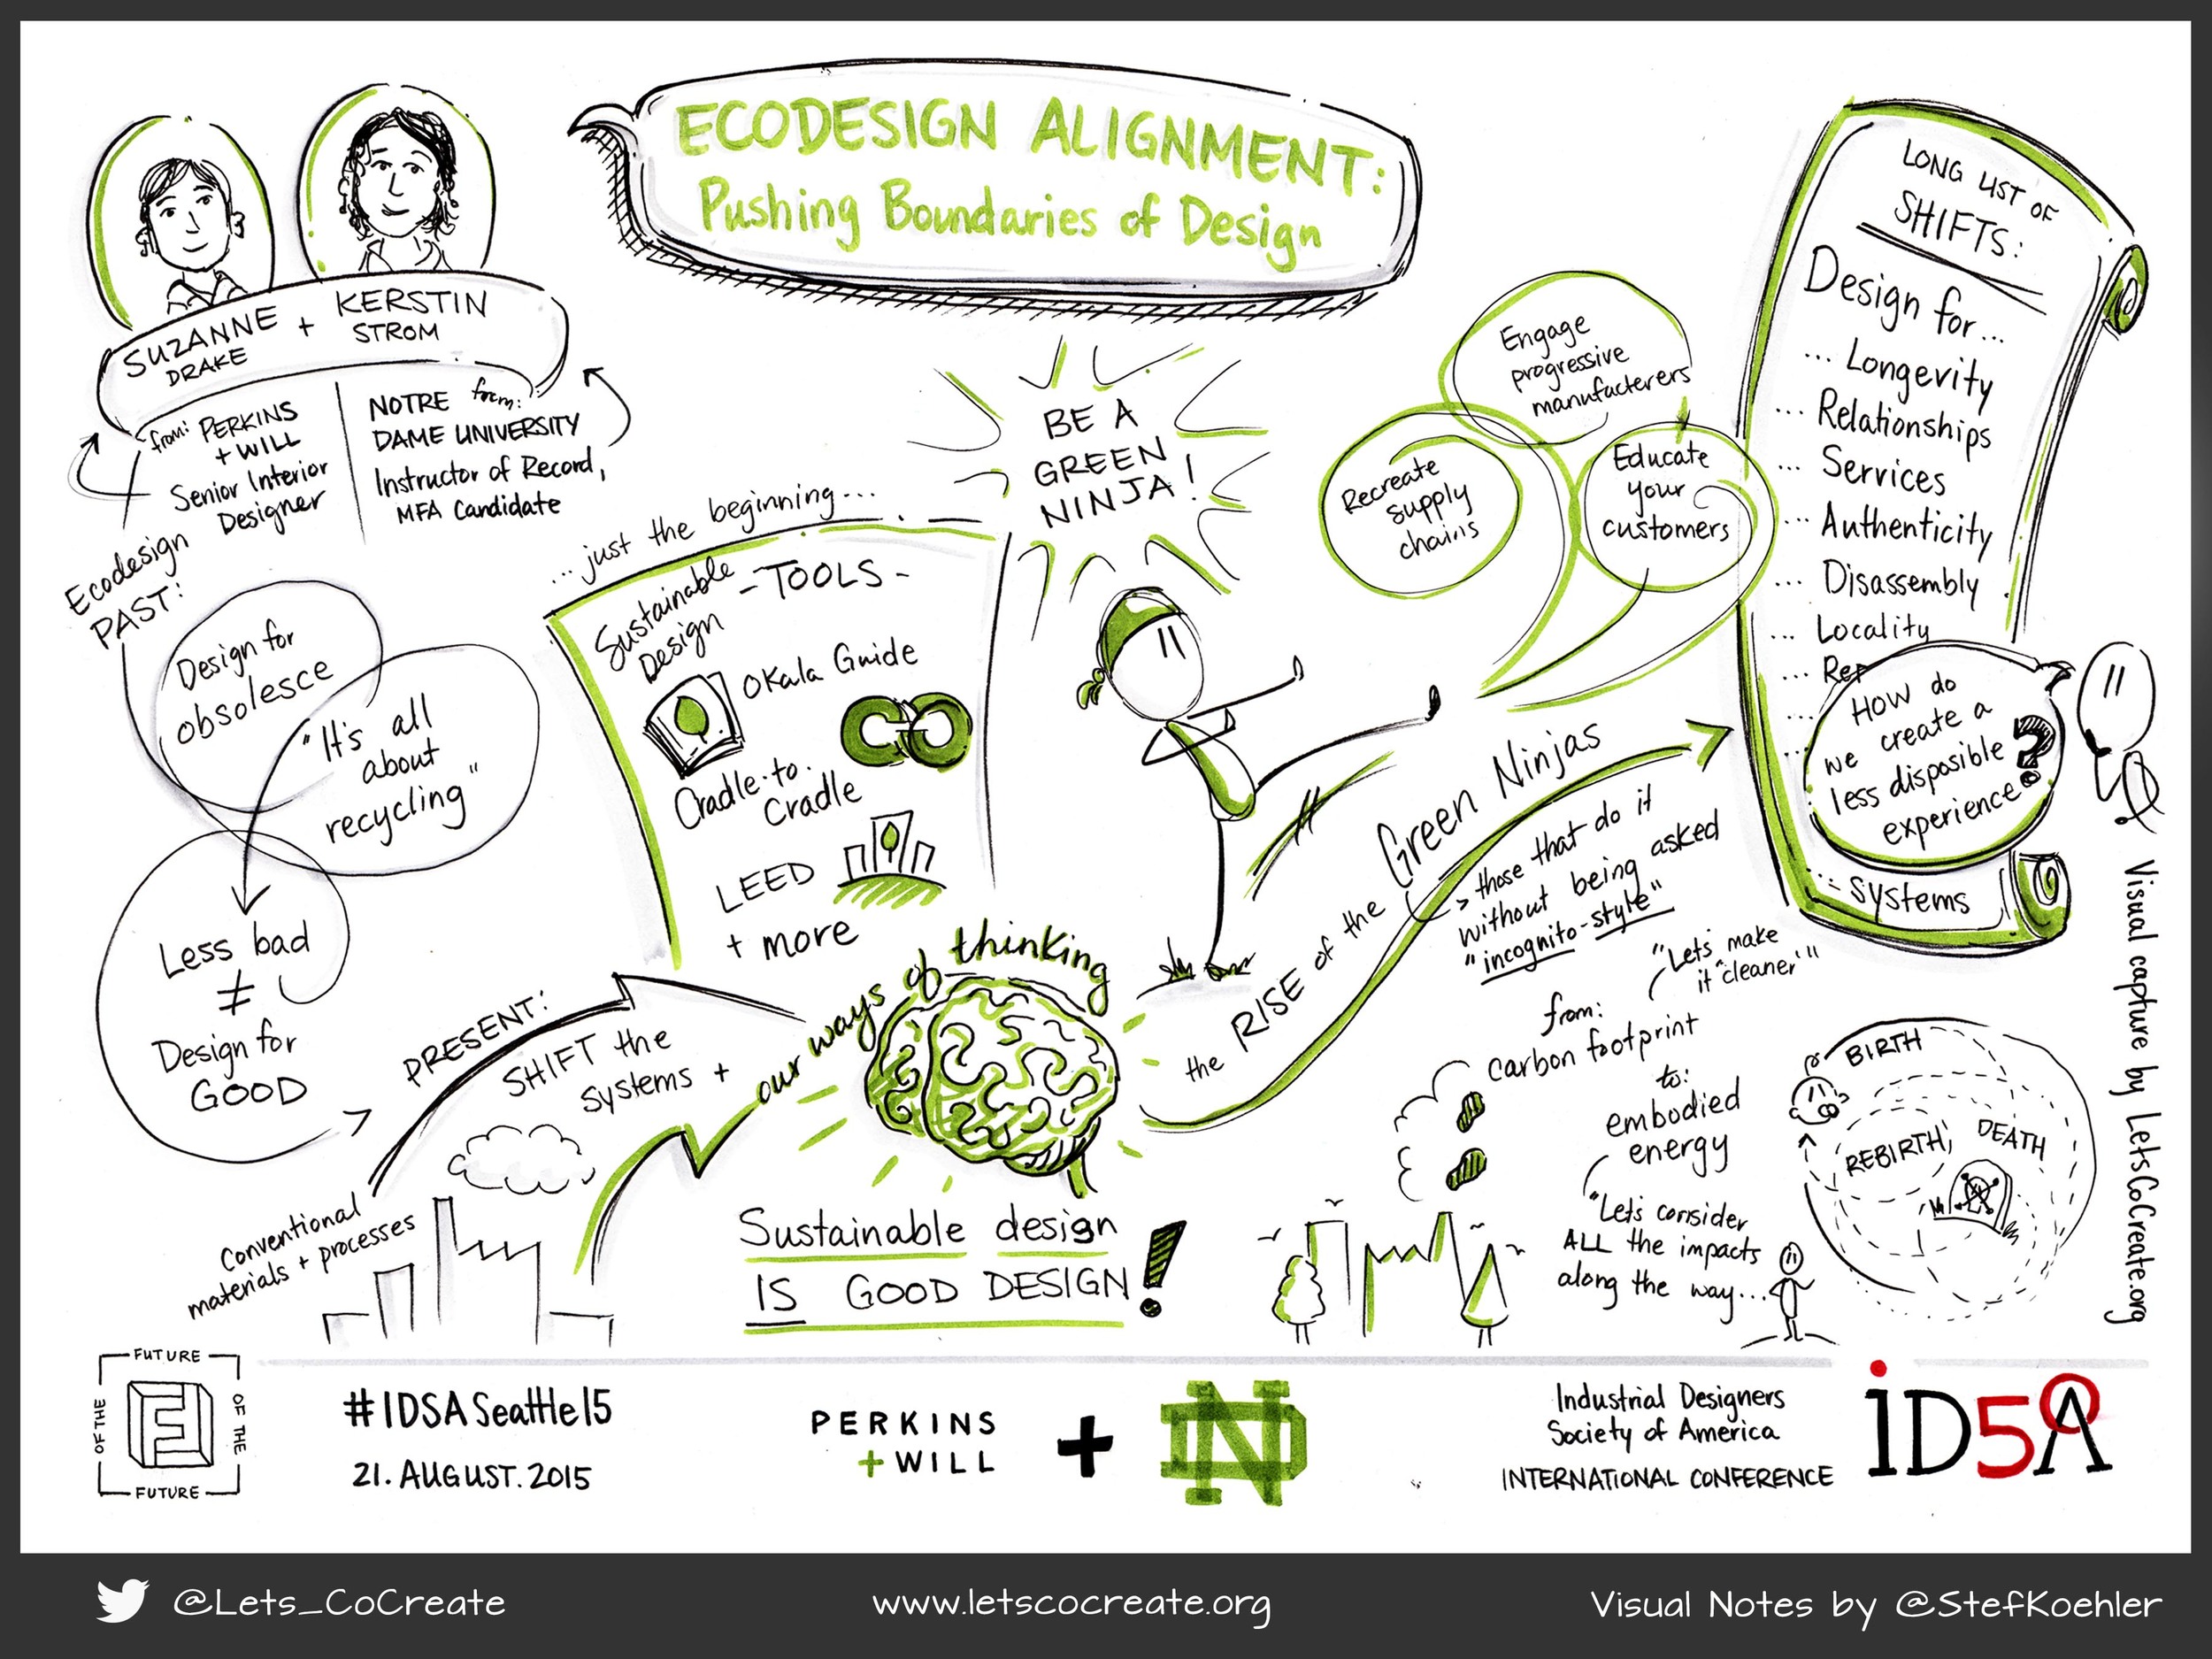 ECODESIGN ALIGNMENT:
Pushing Boundaries of Design
SUZANNE
DRAKE
+
KERSTIN
STROM
from: PERKINS
+ WILL
Senior Interior
Designer
from:
NOTRE
DAME UNIVERSITY
Instructor of Record,
MFA Candidate
Ecodesign
PAST:
Design for
obsolesce
"It's all
about
recycling"
Less bad
≠
Design for
GOOD
...just the beginning...
Sustainable
Design
- TOOLS -
Okala Guide
C+C
Cradle-to-
Cradle
LEED
+ more
BE A
GREEN
NINJA!
Engage
progressive
manufacterers
Recreate
supply
chains
Educate
your
customers
LONG LIST OF
SHIFTS:
Design for...
... Longevity
... Relationships
... Services
... Authenticity
... Disassembly
... Locality
... Rep
...
...
HOW do
we create a
less disposible
experience?
... systems
PRESENT:
SHIFT the
systems +
our ways of thinking
Conventional
materials + processes
Sustainable design
IS GOOD DESIGN!
the RISE of the Green Ninjas
> those that do it
without being asked
"incognito-style"
"Lets make
it "cleaner""
from:
carbon footprint
to:
embodied
energy
"Lets consider
ALL the impacts
along the way...
BIRTH
DEATH
REBIRTH
Visual capture by LetsCoCreate.org
FUTURE
OF THE
OF THE
FUTURE
#IDSASeattle15
21. AUGUST. 2015
PERKINS
+WILL
+
ND
Industrial Designers
Society of America
INTERNATIONAL CONFERENCE
iD5A
@Lets_CoCreate
www.letscocreate.org
Visual Notes by @StefKoehler